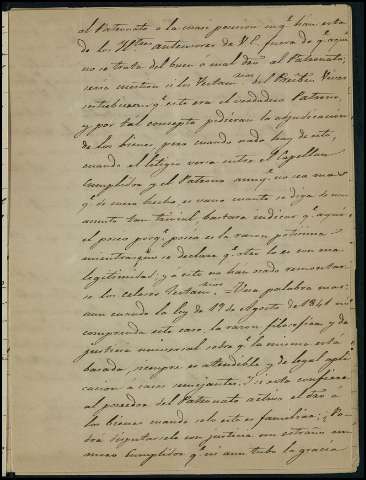 al Patronato o la cuasi posesion en q.e han estado
de los Yltres anteriores de V.E. fuera de q.e aquí
no se trata del buen o mal dro al Patronato,
seria cuestion si los Testam.rios del Presb.o Vives
q.e este era el verdadero Patrono,
y por tal concepto pidieran la adjudicacion
de los bienes, pero cuando nada hay de esto,
cuando el litigio versa entre el Capellan
Cumplidor y el Patrono aunq.e no sea mas
q.e de mero hecho, es vano cuanto se diga de un
asunto tan trivial, bastará indicar q.e aquí
el poseo porq.e poseo es la razon potisima
mientras no se declara q.e otro lo es con mas
legitimidad; y á esto no han osado remontar
se los celosos Testam.rios Una palabra mas:
aun cuando la ley de 19 de Agosto de 1841 no
comprenda este caso, la razon filosofica y de
justicia universal sobre q.e la misma está
basada, siempre es atendible y de legal apli
cacion á casos semejantes. Si esta confiere
al poseedor del Patronato activo el dro á
los bienes cuando solo este es familiar; ¿Po
drá disputarselo con justicia un estraño un
mero Cumplidor q.e ni aun tubo la gracia